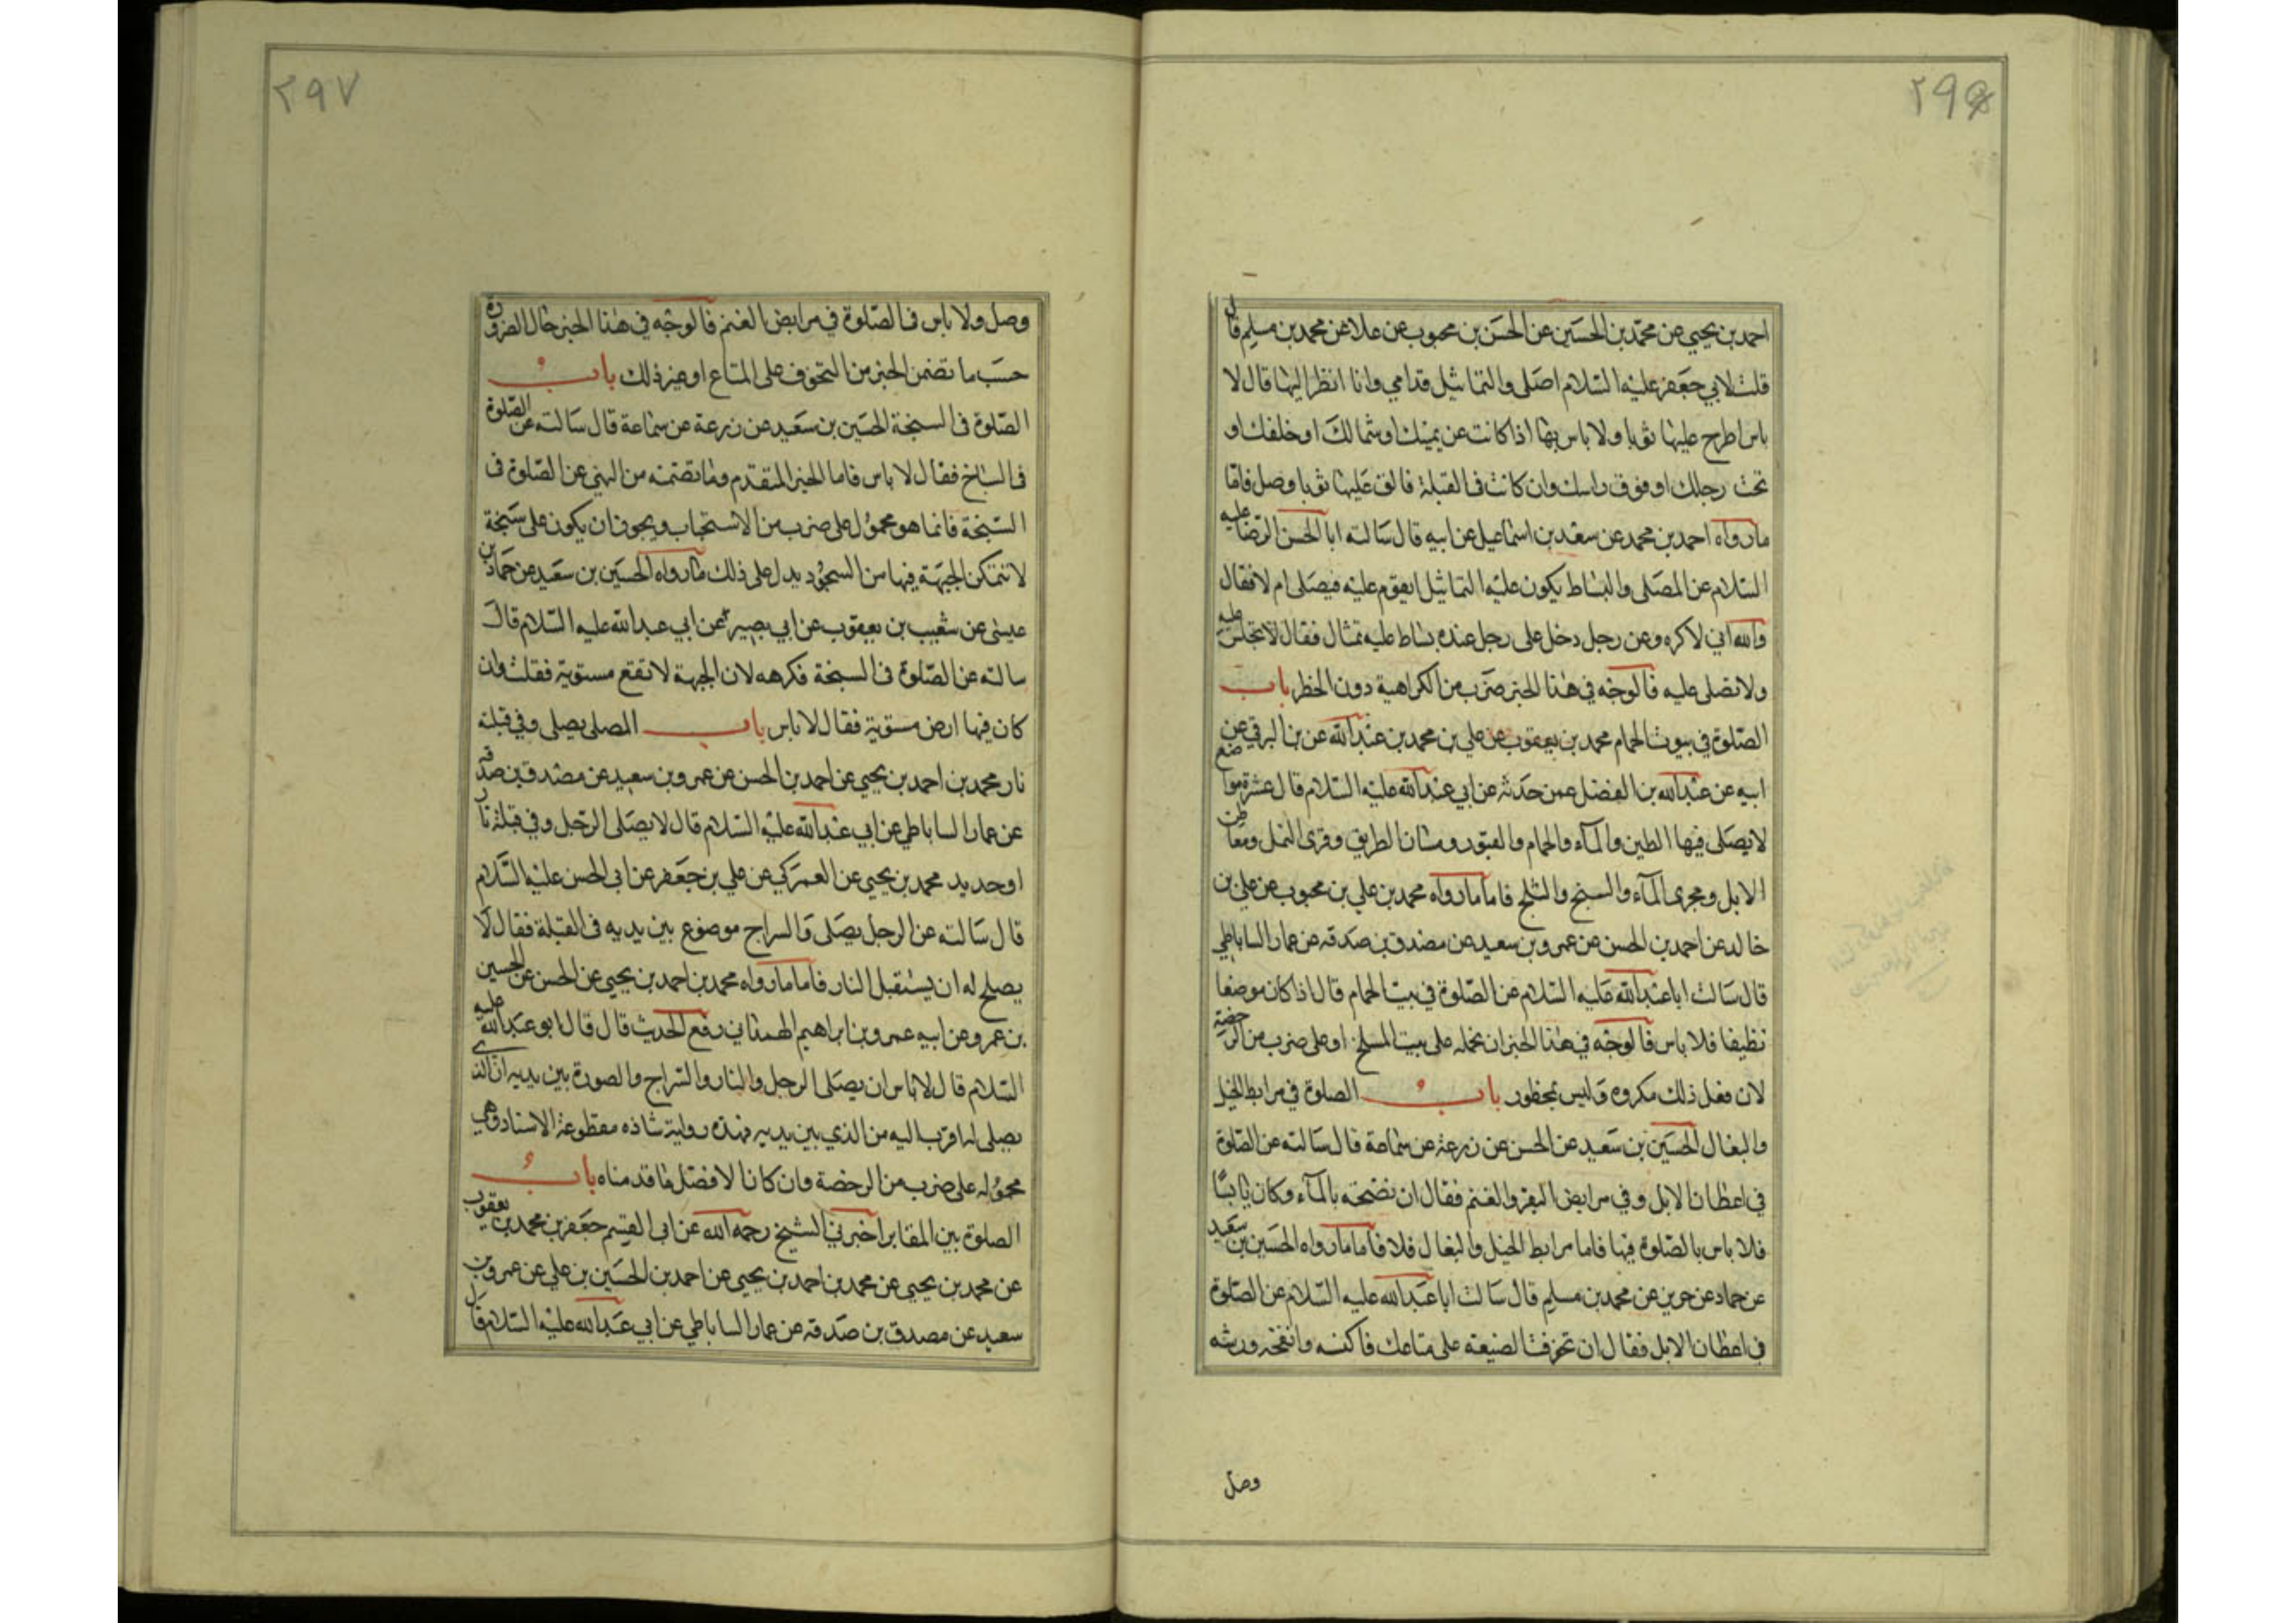 ٢٩٦
احمد بن يحيى عن محمد بن الحسين عن الحسن بن محبوب عن علا عن محمد بن مسلم قال
قلت لابي جعفر عليه السلام اصلى والتماثيل قدامي وانا انظر اليها قال لا
باس اطرح عليها ثوبا ولا باس بها اذا كانت عن يمينك او شمالك او خلفك او
تحت رجلك او فوق راسك وان كانت فى القبلة فالق عليها ثوبا وصل فاما
ما رواه احمد بن محمد عن سعد بن اسماعيل عن ابيه قال سالته ابا الحسن الرضا عليه
السلام عن المصلى والبساط يكون عليه التماثيل ايقوم عليه فيصلى ام لا فقال
والله اني لاكره وعن رجل دخل على رجل عنده بساط عليه تمثال فقال لا تجلس عليه
ولا تصلى عليه فالوجه في هذا الخبر ضرب من الكراهية دون الحظر باب
الصلوة في بيوت الحمام محمد بن يعقوب عن علي بن محمد بن عبدالله عن بن البرقي عن
ابيه عن عبدالله بن الفضل عمن حدثه عن ابي عبدالله عليه السلام قال عشرة مواضع
لا يصلى فيها الطين والمآء والحمام والقبور ومسان الطريق وقرى النمل ومعاطن
الابل ومجرى المآء والسبخ والثلج فاما ما رواه محمد بن علي بن محبوب عن علي بن
خالد عن احمد بن الحسن عن عمرو بن سعيد عن مصدق بن صدقه عن عمار الساباطي
قال سالت ابا عبدالله عليه السلام عن الصلوة في بيت الحمام قال اذا كان موضعا
نظيفا فلا باس فالوجه في هذا الخبر ان نحمله على بيت المسلخ او على ضرب من الرخصة
لان فعل ذلك مكروه وليس بمحظور باب الصلوة في مرابط الخيل
والبغال الحسين بن سعيد عن الحسن عن زرعة عن سماعة قال سالته عن الصلوة
في اعطان الابل وفي مرابض البقر والغنم فقال ان نضحته بالمآء وكان يابسا
فلا باس بالصلوة فيها فاما مرابط الخيل والبغال فلا فاما ما رواه الحسين بن سعيد
عن حماد عن حريز عن محمد بن مسلم قال سالت ابا عبدالله عليه السلام عن الصلوة
في اعطان الابل فقال ان تخوفت الضيعة على متاعك فاكنسه وانضحه ورشه
وصل
٢٩٧
وصل ولا باس فى الصلوة في مرابض الغنم فالوجه في هذا الخبر حال الضرورة
حسب ما تضمن الخبر من التخوف على المتاع او غير ذلك باب
الصلوة فى السبخة الحسين بن سعيد عن زرعة عن سماعة قال سالته عن الصلوة
فى السباخ فقال لا باس فاما الخبر المتقدم وما تضمنه من النهي عن الصلوة فى
السبخة فانما هو محمول على ضرب من الاستحباب ويجوز ان يكون على سبخة
لا تتمكن الجبهة فيها من السجود يدل على ذلك ما رواه الحسين بن سعيد عن حماد بن
عيسى عن شعيب بن يعقوب عن ابي بصير عن ابي عبدالله عليه السلام قال
سالته عن الصلوة فى السبخة فكرهه لان الجبهة لا تقع مستوية فقلت فان
كان فيها ارض مستوية فقال لا باس باب المصلى يصلى وفي قبلته
نار محمد بن احمد بن يحيى عن احمد بن الحسن عن عمرو بن سعيد عن مصدق بن صدقه
عن عمار الساباطي عن ابي عبدالله عليه السلام قال لا يصلى الرجل وفي قبلته نار
او حديد محمد بن يحيى عن العمركي عن علي بن جعفر عن ابي الحسن عليه السلام
قال سالته عن الرجل يصلى والسراج موضوع بين يديه فى القبلة فقال لا
يصلح له ان يستقبل النار فاما ما رواه محمد بن احمد بن يحيى عن الحسن عن الحسين
بن عمرو عن ابيه عمرو بن ابراهيم الهمداني رفع الحديث قال قال ابو عبدالله عليه
السلام قال لا باس ان يصلى الرجل والنار والسراج والصورة بين يديه ان الذى
يصلى له اقرب اليه من الذي بين يديه فهذه رواية شاذه مقطوعة الاسناد وهي
محموله على ضرب من الرخصة وان كان الافضل ما قدمناه باب
الصلوة بين المقابر اخبرني الشيخ رحمه الله عن ابى القسم جعفر بن محمد بن يعقوب
عن محمد بن يحيى عن محمد بن احمد بن يحيى عن احمد بن الحسين بن علي عن عمرو بن
سعيد عن مصدق بن صدقه عن عمار الساباطي عن ابي عبدالله عليه السلام قال